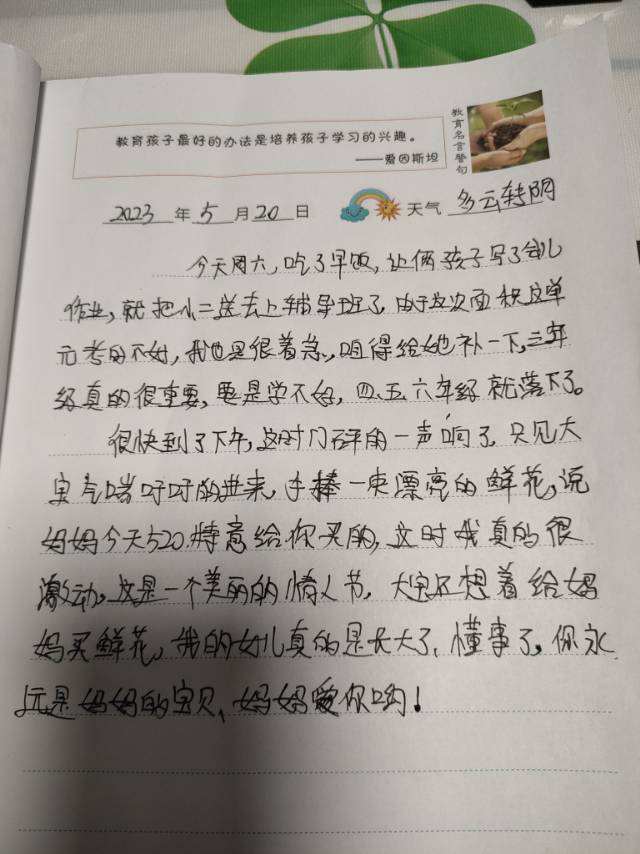 教育孩子最好的办法是培养孩子学习的兴趣。
——爱因斯坦
教育名言警句
2023 年 5 月 20 日 天气 多云转阴
今天周六,吃了早饭,让俩孩子写了会儿
作业,就把小二送去上辅导班了,由于这次面积这单
元考的不好,我也是很着急,咱得给她补一下,三年
级真的很重要,要是学不好,四、五、六年级就落下了。
很快到了下午,这时门砰的一声响了,只见大
宝气喘吁吁的进来,手捧一束漂亮的鲜花,说
妈妈今天520.特意给你买的,这时我真的很
激动,这是一个美丽的情人节,大宝还想着给妈
妈买鲜花,我的女儿真的是长大了,懂事了。你永
远是妈妈的宝贝、妈妈爱你哟!